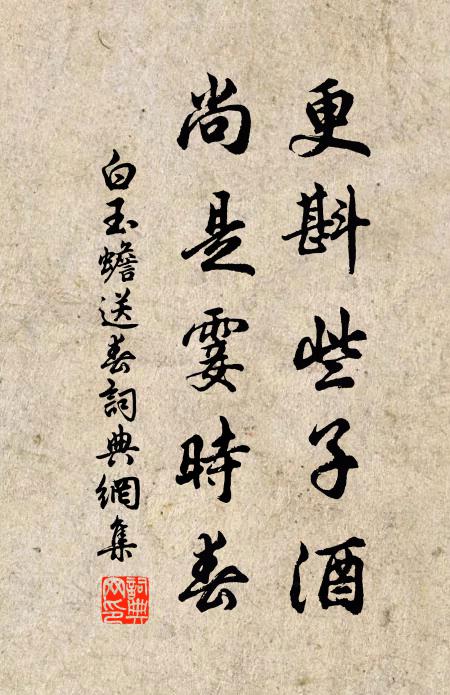 更斟些子酒
尚是霎時春
白玉蟾送春詞典網集
詞典網印